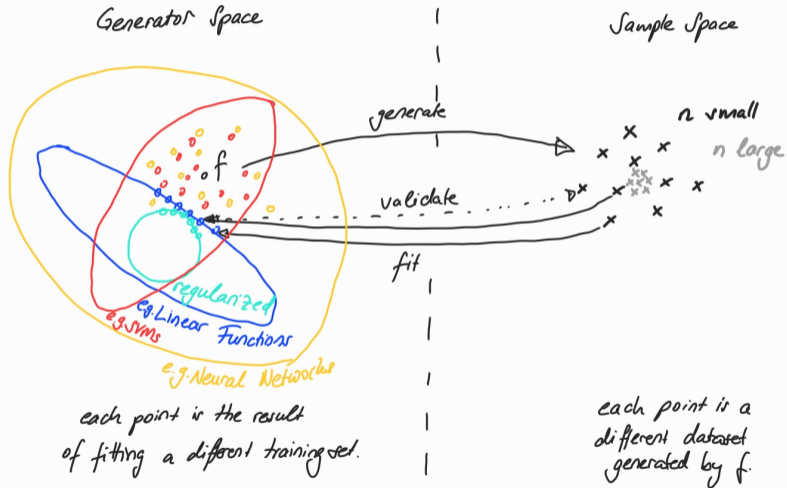 Generator Space
Sample Space
generate
n small
n large
f
validate
fit
regularized
e.g. Linear Functions
e.g. SVMs
e.g. Neural Networks
each point is the result
of fitting a different training set.
each point is a
different dataset
generated by f.